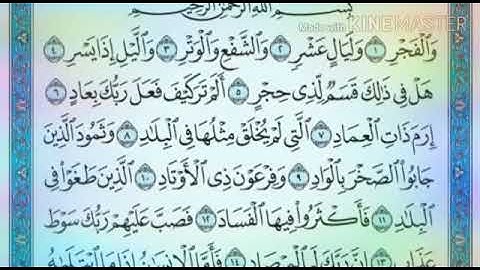 بِسْمِ ٱللَّهِ ٱلرَّحْمَٰنِ ٱلرَّحِيمِ
Made with KINEMASTER
وَٱلْفَجْرِ ١ وَلَيَالٍ عَشْرٍ ٢ وَٱلشَّفْعِ وَٱلْوَتْرِ ٣ وَٱلَّيْلِ إِذَا يَسْرِ ٤
هَلْ فِى ذَٰلِكَ قَسَمٌ لِّذِى حِجْرٍ ٥ أَلَمْ تَرَ كَيْفَ فَعَلَ رَبُّكَ بِعَادٍ ٦
إِرَمَ ذَاتِ ٱلْعِمَادِ ٧ ٱلَّتِى لَمْ يُخْلَقْ مِثْلُهَا فِى ٱلْبِلَٰدِ ٨ وَثَمُودَ ٱلَّذِينَ
جَابُوا۟ ٱلصَّخْرَ بِٱلْوَادِ ٩ وَفِرْعَوْنَ ذِى ٱلْأَوْتَادِ ١٠ ٱلَّذِينَ طَغَوْا۟ فِى
ٱلْبِلَٰدِ ١١ فَأَكْثَرُوا۟ فِيهَا ٱلْفَسَادَ ١٢ فَصَبَّ عَلَيْهِمْ رَبُّكَ سَوْطَ
عَذَابٍ ١٣ إِنَّ رَبَّكَ لَبِٱلْمِرْصَادِ ١٤ فَأَمَّا ٱلْإِنسَٰنُ إِذَا مَا ٱبْتَلَىٰهُ